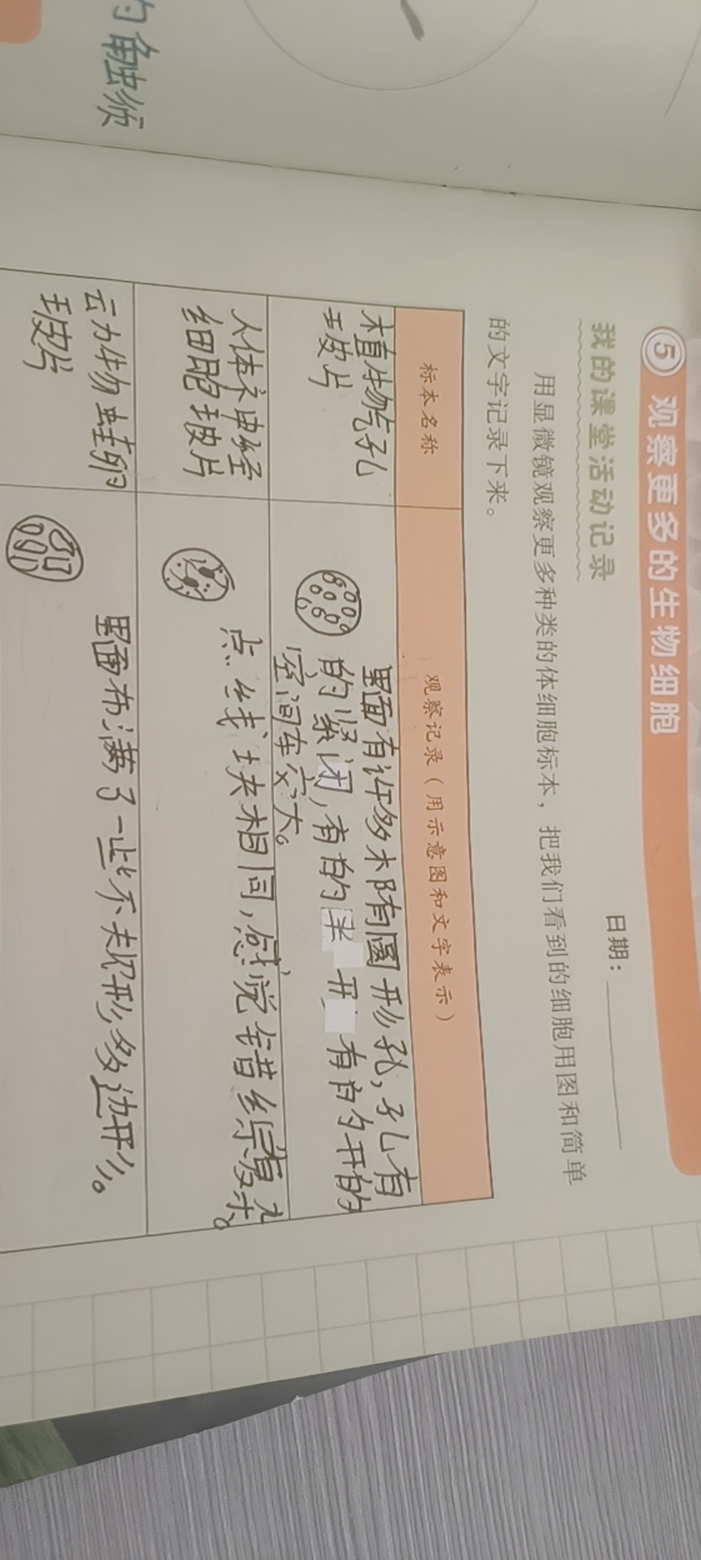 的触须
5 观察更多的生物细胞
我的课堂活动记录
日期：
用显微镜观察更多种类的体细胞标本，把我们看到的细胞用图和简单
的文字记录下来。
标本名称
观察记录（用示意图和文字表示）
植物气孔
玻片
里面有许多木隋圆形孔，孔有
的紧闭，有的半开 有的开的
空间车交大。
人体神经
细胞玻片
点、线、块相同，感觉错综复杂。
动物蛙卵
玻片
里面布满了一些不规形多边形。